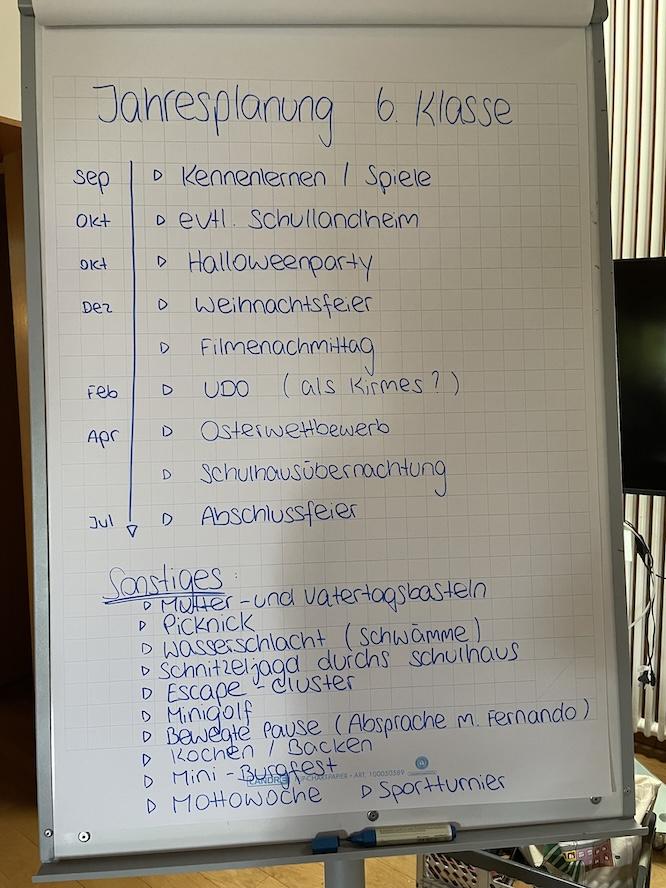 Jahresplanung 6. Klasse
Sep ▷ Kennenlernen / Spiele
Okt ▷ evtl. Schullandheim
Okt ▷ Halloweenparty
Dez ▷ Weihnachtsfeier
▷ Filmenachmittag
Feb ▷ UDO (als Kirmes?)
Apr ▷ Osterwettbewerb
▷ Schulhausübernachtung
Jul ▷ Abschlussfeier
Sonstiges:
▷ Mutter- und Vatertagsbasteln
▷ Picknick
▷ Wasserschlacht (Schwämme)
▷ Schnitzeljagd durchs Schulhaus
▷ Escape-Cluster
▷ Minigolf
▷ Bewegte Pause (Absprache m. Fernando)
▷ Kochen / Backen
▷ Mini-Burgfest
LANDRÉ FLIPCHARTPAPIER • ART. 100050589
▷ Mottowoche ▷ Sportturnier